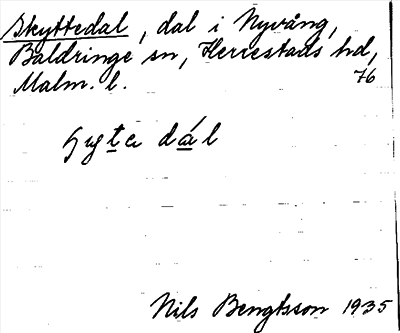 Skyttedal, dal i Nyvång,
Baldringe sn, Herrestads hd,
Malm. l. 76
dál
Nils Bengtsson 1935